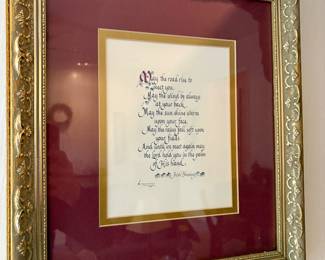 May the road rise to
meet you.
May the wind be always
at your back.
May the sun shine warm
upon your face.
May the rains fall soft upon
your fields
And until we meet again may
the Lord hold you in the palm
of His hand.
Irish Blessing